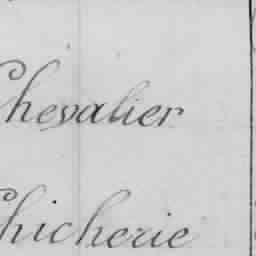 Chevalier
Chicherie